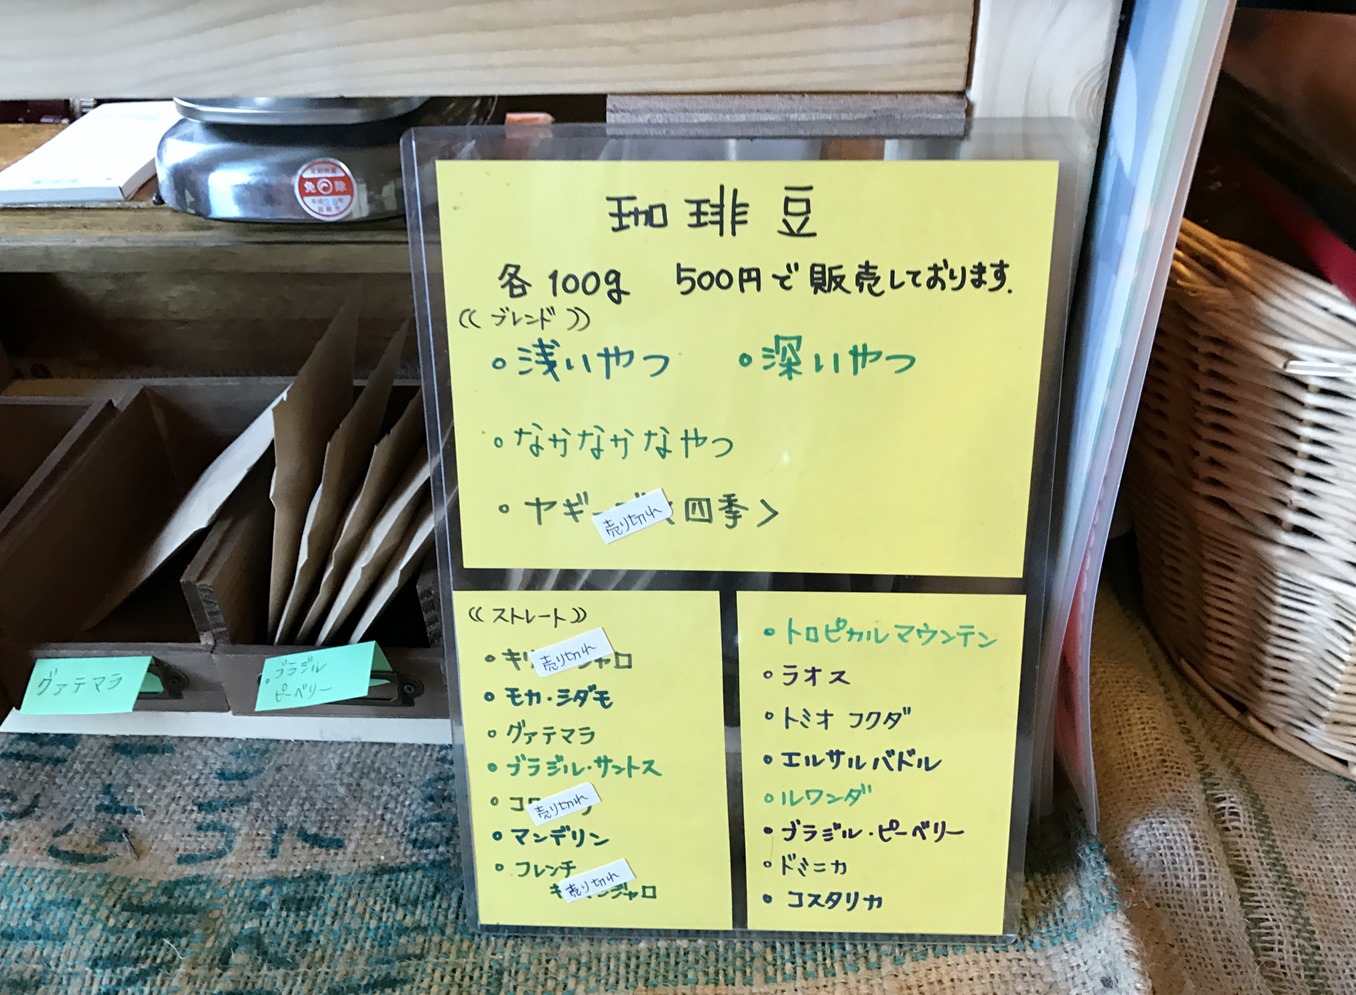 珈琲豆
各100g 500円で販売しております.
《ブレンド》
・浅いやつ ・深いやつ
・なかなかなやつ
・ヤギー 売り切れ 四季>
《ストレート》
・キリ 売り切れ ャロ
・モカ・シダモ
・グァテマラ
・ブラジル・サントス
・コ 売り切れ
・マンデリン
・フレンチ
キ 売り切れ ンジャロ
・トロピカルマウンテン
・ラオス
・トミオ フクダ
・エルサルバドル
・ルワンダ
・ブラジル・ピーベリー
・ドミニカ
・コスタリカ
グァテマラ
・ブラジル
ピーベリー
免 除